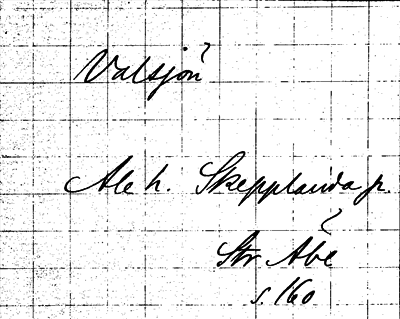 Valsjön
Ale h. Skepplanda p.
Str Åbe
s. 160